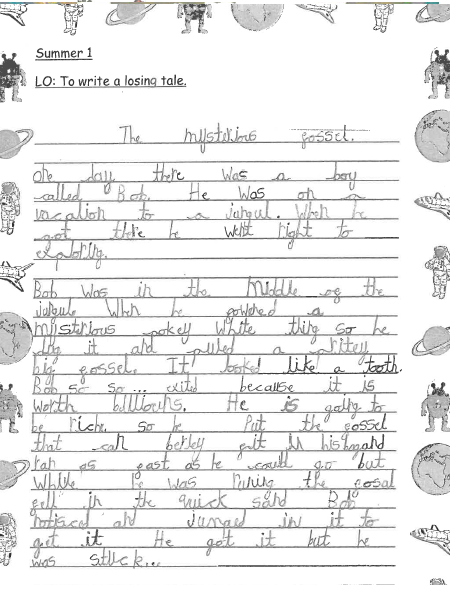 Summer 1
LO: To write a losing tale.
The mysterious fossel.
one day there was a boy
called Bob. He was on a
vacation to a jungul. When he
got there he went right to
exploring.
Bob was in the middle of the
jungule When he a
mysterious pokey white thing so he
dug it and pulled a pritey
big fossel. It looked like a tooth.
Bob so so... exited because it is
worth billiouns. He is going to
be riche. so he Put the fossel
that can berley fit in his hand
ran as fast as he could go but
While he was runing the fosal
fell in the quick sand Bob
notised and jumped in it to
get it He got it but he
was stuck...